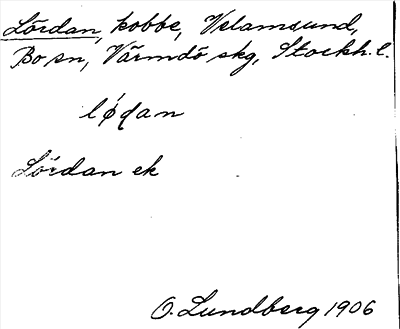 Lördan, kobbe, Velamsund,
Bo sn, Värmdö skg, Stockh. l.
lǿḍan
Lördan ek
O. Lundberg 1906